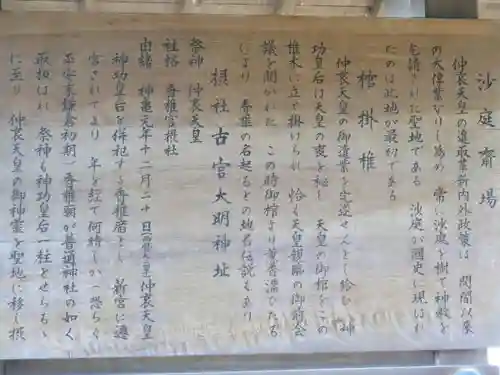 沙庭斎場
仲哀天皇の進取革新内外政策は 開闢以来
の大偉業なりし為め 常に沙庭を樹て神教を
を請うされた聖地である 沙庭が国史に現はれ
たのは此地が最初である
棺掛椎
仲哀天皇の御遺業を完遂せんとし給ひ 神
功皇后は天皇の喪を秘し 天皇の御棺をこの
椎木に立て掛けられ 恰も天皇親臨の御前会
議を開かれた この時御棺より薫香漂ひたる
により 香椎の名起るとの地名伝説もあり
摂社古宮大明神址
祭神 仲哀天皇
社格 香椎宮摂社
由緒 神亀元年十二月二十日 仲哀天皇
神功皇后を併祀する香椎宿とし 新宮に遷
宮されてより 年を経て何時しか一恐らく
平安末鎌倉初期一香椎廟が普通神社の如く
取扱はれ 祭神も神功皇后一柱とせらるゝ
に至り 仲哀天皇の御神霊を聖地に移し摂